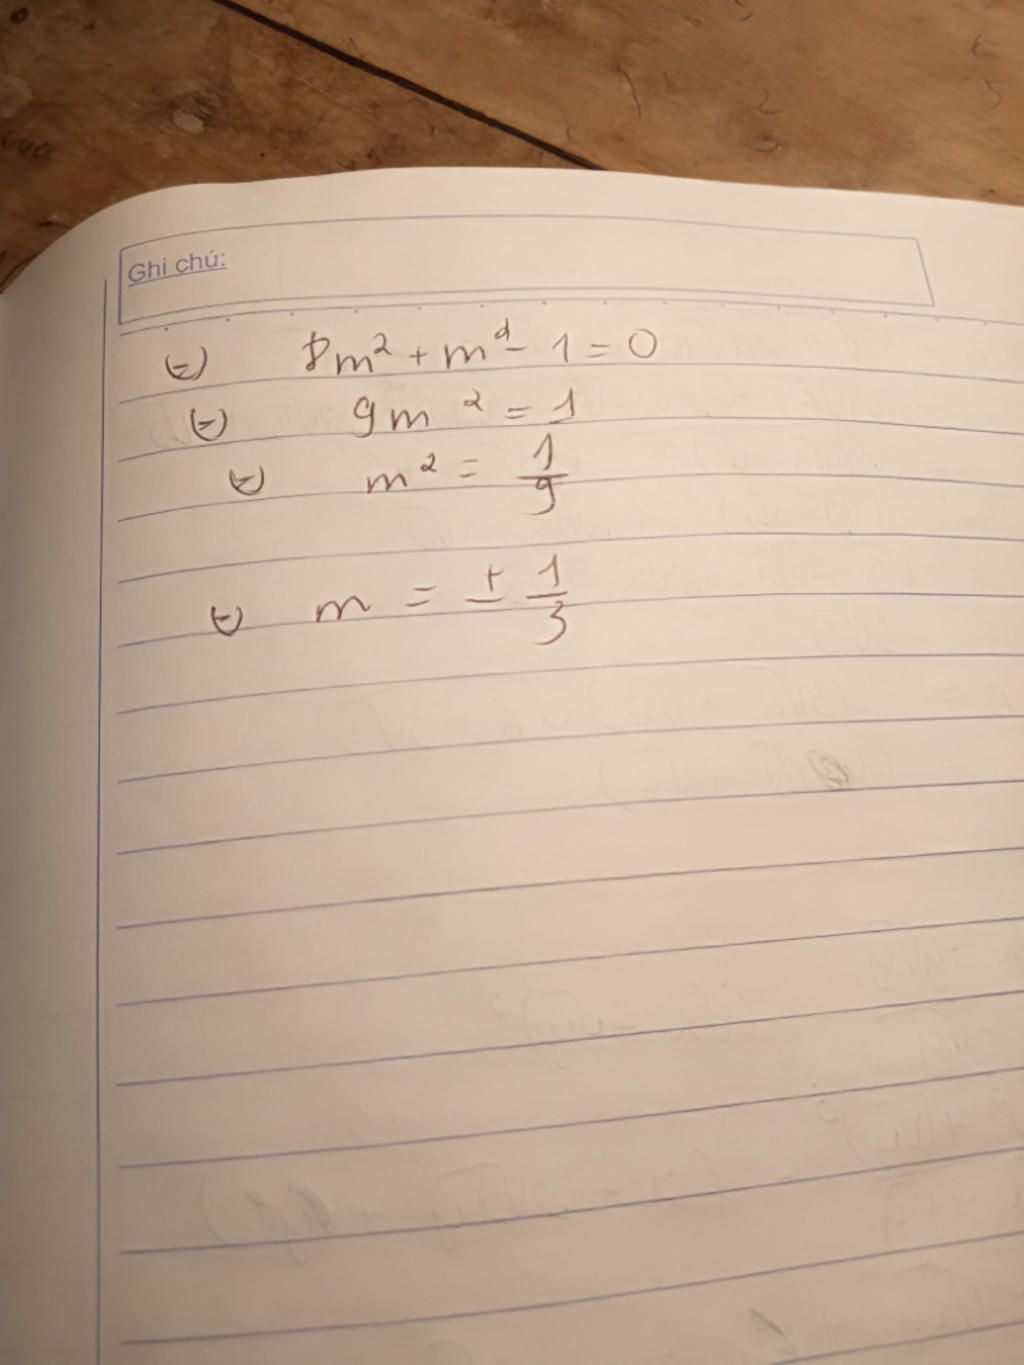 Ghi chú:
⇔ 8m² + m² - 1 = 0
⇔ 9m² = 1
⇔ m² = 1/9
⇔ m = ± 1/3